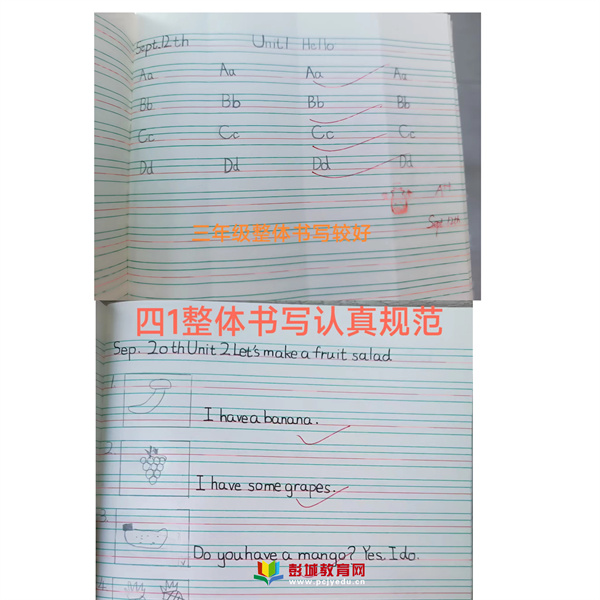 Sept.12th Unit1 Hello
Aa Aa Aa Aa
Bb Bb Bb Bb
Cc Cc Cc Cc
Dd Dd Dd Dd
A+
Sept 12th
三年级整体书写较好
四1整体书写认真规范
Sep. 20th Unit 2 Let's make a fruit salad
1.
I have a banana.
2.
I have some grapes.
3.
Do you have a mango? Yes. I do.
4.
彭城教育网
www.pcjyedu.cn